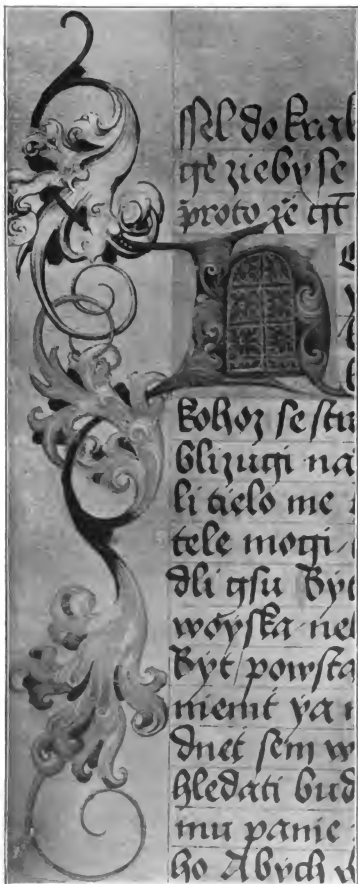 ſſel do kral
gie zieby ſe
proto że gſt
H
kohoz ſe ſtra
blizugi na
li tielo me
tele mogi
dli gſu Byt
woyſka nel
Byt powſta
nienit ya
dnet ſem w
hledati bud
mu panie
ho Abych